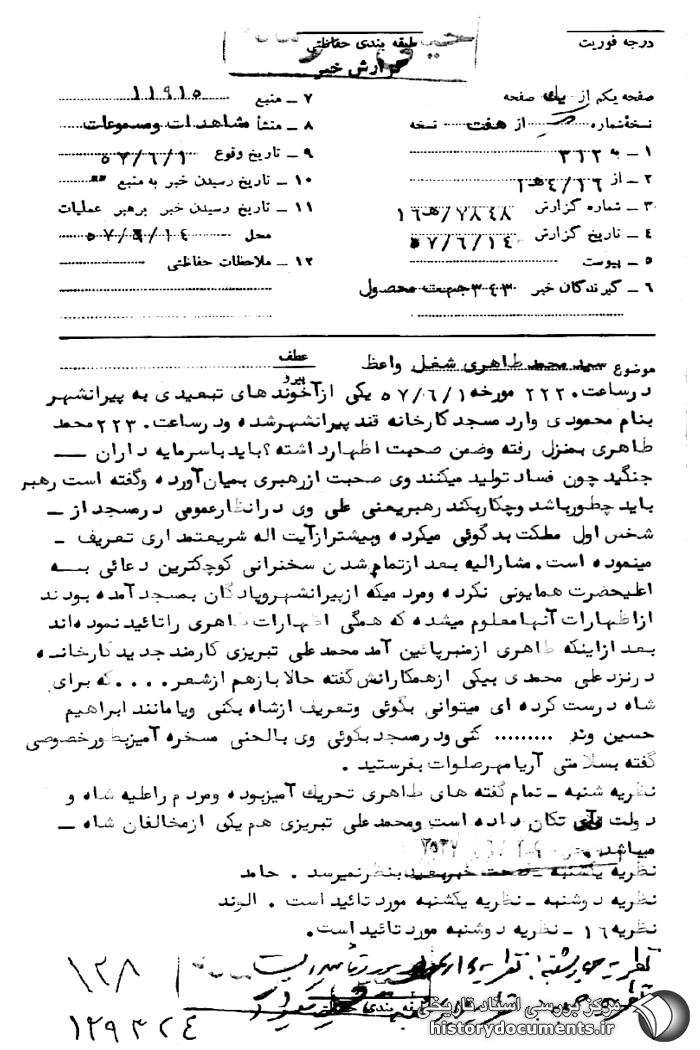 درجه فوریت
طبقه بندی حفاظتی
گزارش خبر
صفحه یکم از یک صفحه
نسخه شماره از هفت نسخه
۱ ـ به ۳۱۲
۲ ـ از ۱۶/۴هـ۱
۳ ـ شماره گزارش ۷۸۴۸/هـ۱۶
۴ ـ تاریخ گزارش ۵۷/۶/۱۴
۵ ـ پیوست
۶ ـ گیرندگان خبر ۳۴۳ جهت محصول
۷ ـ منبع ۱۱۹۱۵
۸ ـ منشأ مشاهدات ومسموعات
۹ ـ تاریخ وقوع ۵۷/۶/۱۰
۱۰ ـ تاریخ رسیدن خبر به منبع "
۱۱ ـ تاریخ رسیدن خبر برهبر عملیات
محل ۵۷/۶/۱۴
۱۲ ـ ملاحظات حفاظتی
موضوع سید محمد طاهری شغل واعظ
عطف
پیرو
درساعت ۲۲۰۰ مورخه ۵۷/۶/۱ یکی ازآخوندهای تبعیدی به پیرانشهر
بنام محمودی وارد مسجد کارخانه قند پیرانشهرشده ودرساعت ۲۲۳۰ محمد
طاهری بمنزل رفته وضمن صحبت اظهارداشته ؟ باید باسرمایه داران ـــ
جنگید چون فساد تولید میکنند وی صحبت ازرهبری بمیان آورده وگفته است رهبر
باید چطورباشد وچکاربکند رهبریعنی علی وی درانظارعمومی درمسجد از ـ
شخص اول مملکت بدگوئی میکرده وبیشترازآیت اله شریعتمداری تعریف ـ
مینموده است. مشارالیه بعد ازتمام شدن سخنرانی کوچکترین دعائی بـــه
اعلیحضرت همایونی نکرده ومردمیکه ازپیرانشهروپادگان بمسجد آمده بودند
ازاظهارات آنها معلوم میشده که همگی اظهارات طاهری راتائید نموده اند
بعد ازاینکه طاهری ازمنبرپائین آمد محمدعلی تبریزی کارمند جدید کارخانه
درنزد علی محمدی بیکی ازهمکارانش گفته حالا بازهم ازشعر.... که برای
شاه درست کرده ای میتوانی بگوئی وتعریف ازشاه بکنی ویامانند ابراهیم
حسین ونر ......... کنی ودرمسجد بگوئی وی بالحنی مسخره آمیزبطورخصوصی
گفته بسلامتی آریامهر صلوات بفرستید .
نظریه شنبه ـ تمام گفته های طاهری تحریک آمیزبوده ومردم راعلیه شاه و
دولت تکان داده است ومحمدعلی تبریزی هم یکی ازمخالفان شاه ـ
میباشد
نظریه یکشنبه ـ صحت خبربعید بنظرنمیرسد . حامد
نظریه دوشنبه ـ نظریه یکشنبه مورد تائید است . الوند
نظریه ۱۶ ـ نظریه دوشنبه مورد تائید است.
نظریه چهارشنبه: نظریه مورد تأیید است
۱۲۸
۱۲۹۳۲۴
مرکز بررسی اسناد تاریخی
historydocuments.ir